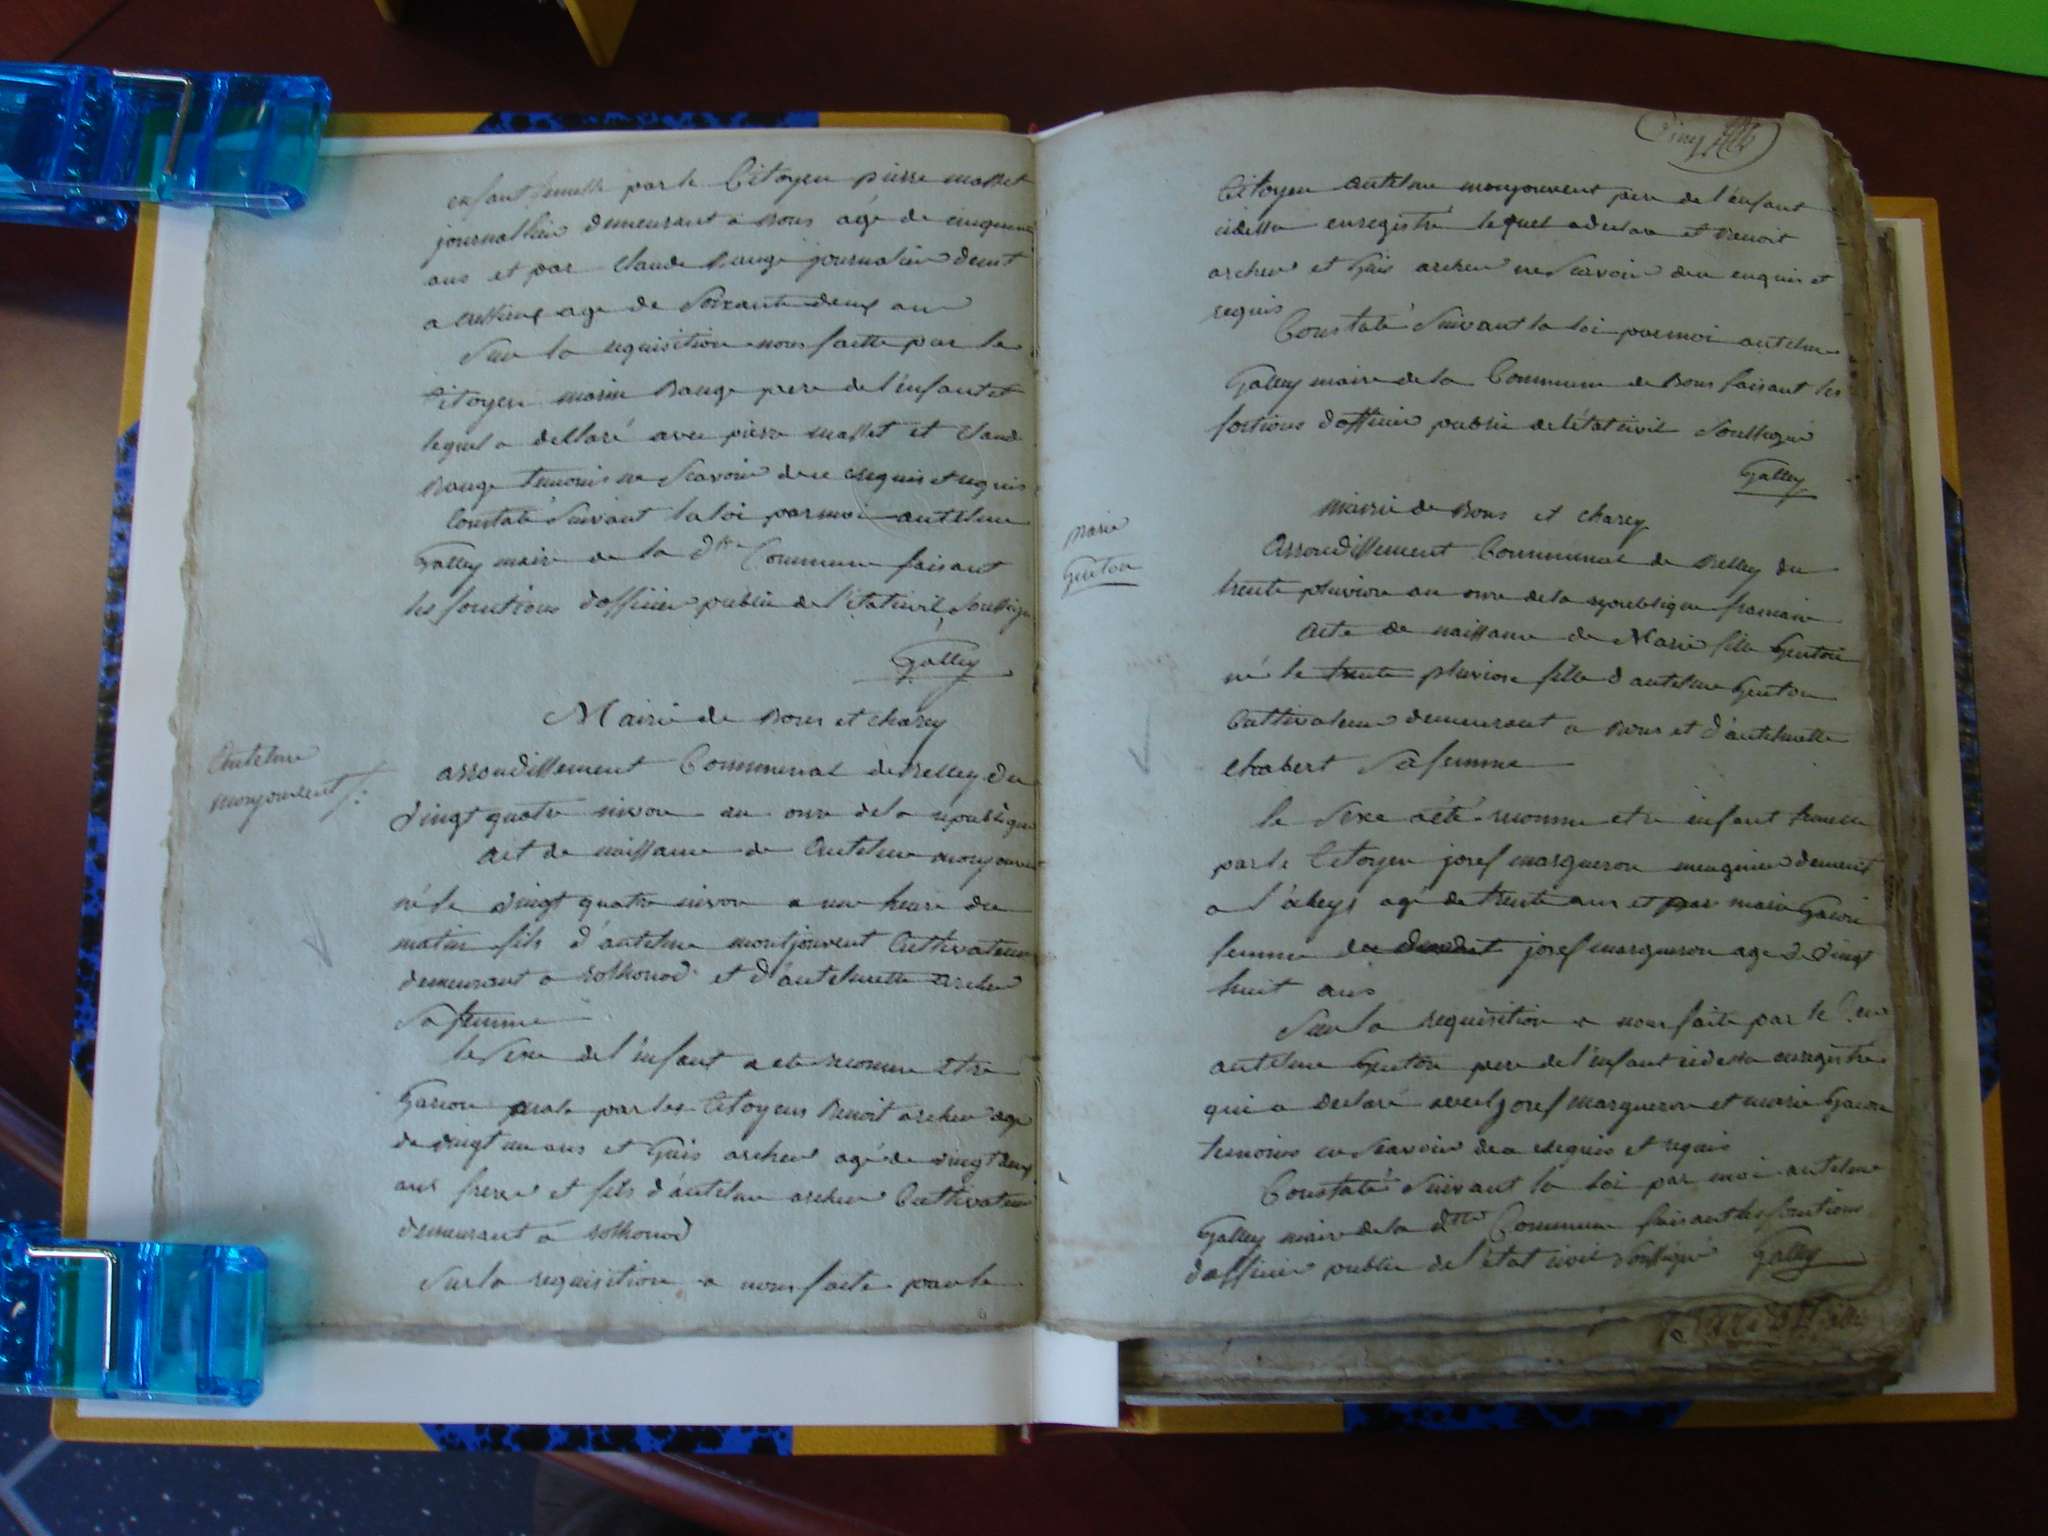 enfant femelle par le Citoyen pierre masset
journallier demeurant a Bons agé de cinquante
ans et par Claude Bauge journalier demt
a age de Soixante deux ans
Sur la requisition a nous faitte par le
Citoyen marin Bauge pere de l'enfant et
lequel a dellaré avec pierre masset et claud
Bauge temoins ne Scavoir de ce enquis et requis
Constaté Suivant la loi par moi antelme
Galley maire de la dte Commune faisant
les fonctions dofficier public de l'etat civil Soussigné
Galley
Antelme
monjouvent
Mairie de Bons et charey
arrondissement Communal de Belley du
vingt quatre nivose an onze de la republique
Act de naissance de Antelme monjouvent
né le vingt quatre nivose a une heure du
matin fils d'antelme montjouvent Cultivateur
demeurant a rothonod et d'antelmette archer
Sa femme
le Sexe de l'enfant a ete reconnu etre
Garcon male par les Citoyens Benoit archer age
de vingt un ans et Guis archer agé de vingt deux
ans freres et fils d'antelme archer Cultivateur
demeurant a rothonod
Sur la requisition a nous faite par le
Cinq
Citoyen antelme monjouvent pere de l'enfant
cidessu enregistré lequel a declare et Benoit
archer et Guis archer ne Scavoir de ce enquis et
requis
Constaté Suivant la loi par moi antelme
Galley maire de la Commune de Bons faisant les
fontions d'officier public de l'état civil Soussigné
Galley
Marie
Guiton
mairie de Bons et charey
Arrondissement Communal de Belley du
trente pluviose an onze de la republique francaise
Acte de naissance de Marie fille Guiton
né le trente pluviose fille d'antelme Guiton
Cultivateur demeurant a Bons et d'antelmette
Chabert Sa femme
le Sexe a été reconnu etre enfant femelle
par le Citoyen josef margueron demeurt
a agé de trente ans et par marie
femme de josef margueron age de vingt
huit ans
Sur la requisition a nous faite par le
antelme Guiton pere de l'enfant cidessu enregistre
qui a declaré avec josef margueron et marie
temoins ne Scavoir de ce enquis et requis
Constaté Suivant la loi par moi antelme
Galley maire de la dtte Commune faisant les fontions
dofficier public de l'état civil Soussigné Galley